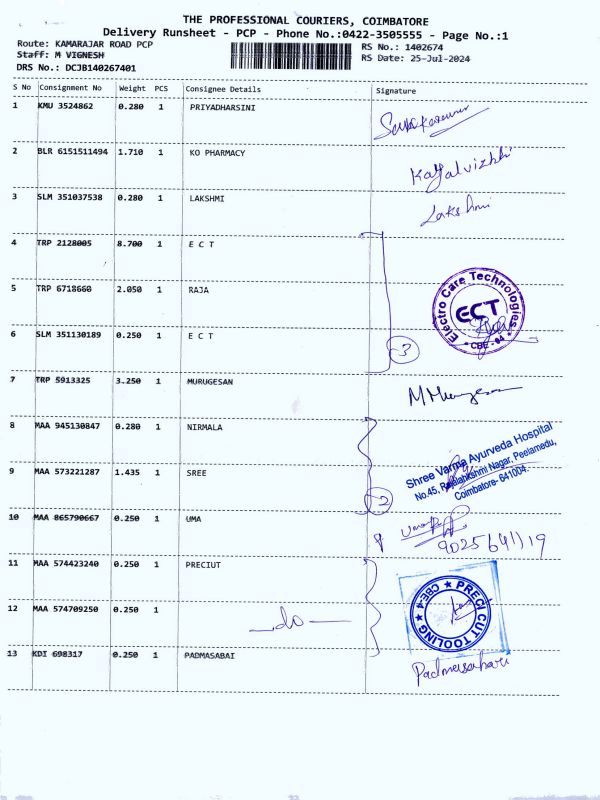 THE PROFESSIONAL COURIERS, COIMBATORE
Delivery Runsheet - PCP - Phone No.:0422-3505555 - Page No.:1
Route: KAMARAJAR ROAD PCP
Staff: M VIGNESH
DRS No.: DCJB140267401
RS No.: 1402674
RS Date: 25-Jul-2024
S No Consignment No Weight PCS Consignee Details Signature
1 KMU 3524862 0.280 1 PRIYADHARSINI
2 BLR 6151511494 1.710 1 KO PHARMACY Kayalvizhi
3 SLM 351037538 0.280 1 LAKSHMI Lakshmi
4 TRP 2128005 8.700 1 E C T
5 TRP 6718660 2.050 1 RAJA
Electro Care Technologies
ECT
* CBE-04 *
6 SLM 351130189 0.250 1 E C T
3
7 TRP 5913325 3.250 1 MURUGESAN M Murugesan
8 MAA 945130847 0.280 1 NIRMALA
Shree Varma Ayurveda Hospital
No.45, Nagar, Peelamedu,
Coimbatore- 641004.
9 MAA 573221287 1.435 1 SREE
2
10 MAA 865790667 0.250 1 UMA
9025641119
11 MAA 574423240 0.250 1 PRECIUT
12 MAA 574709250 0.250 1 —do—
PRECI CUT TOOLING
CBE-4
13 KDI 698317 0.250 1 PADMASABAI